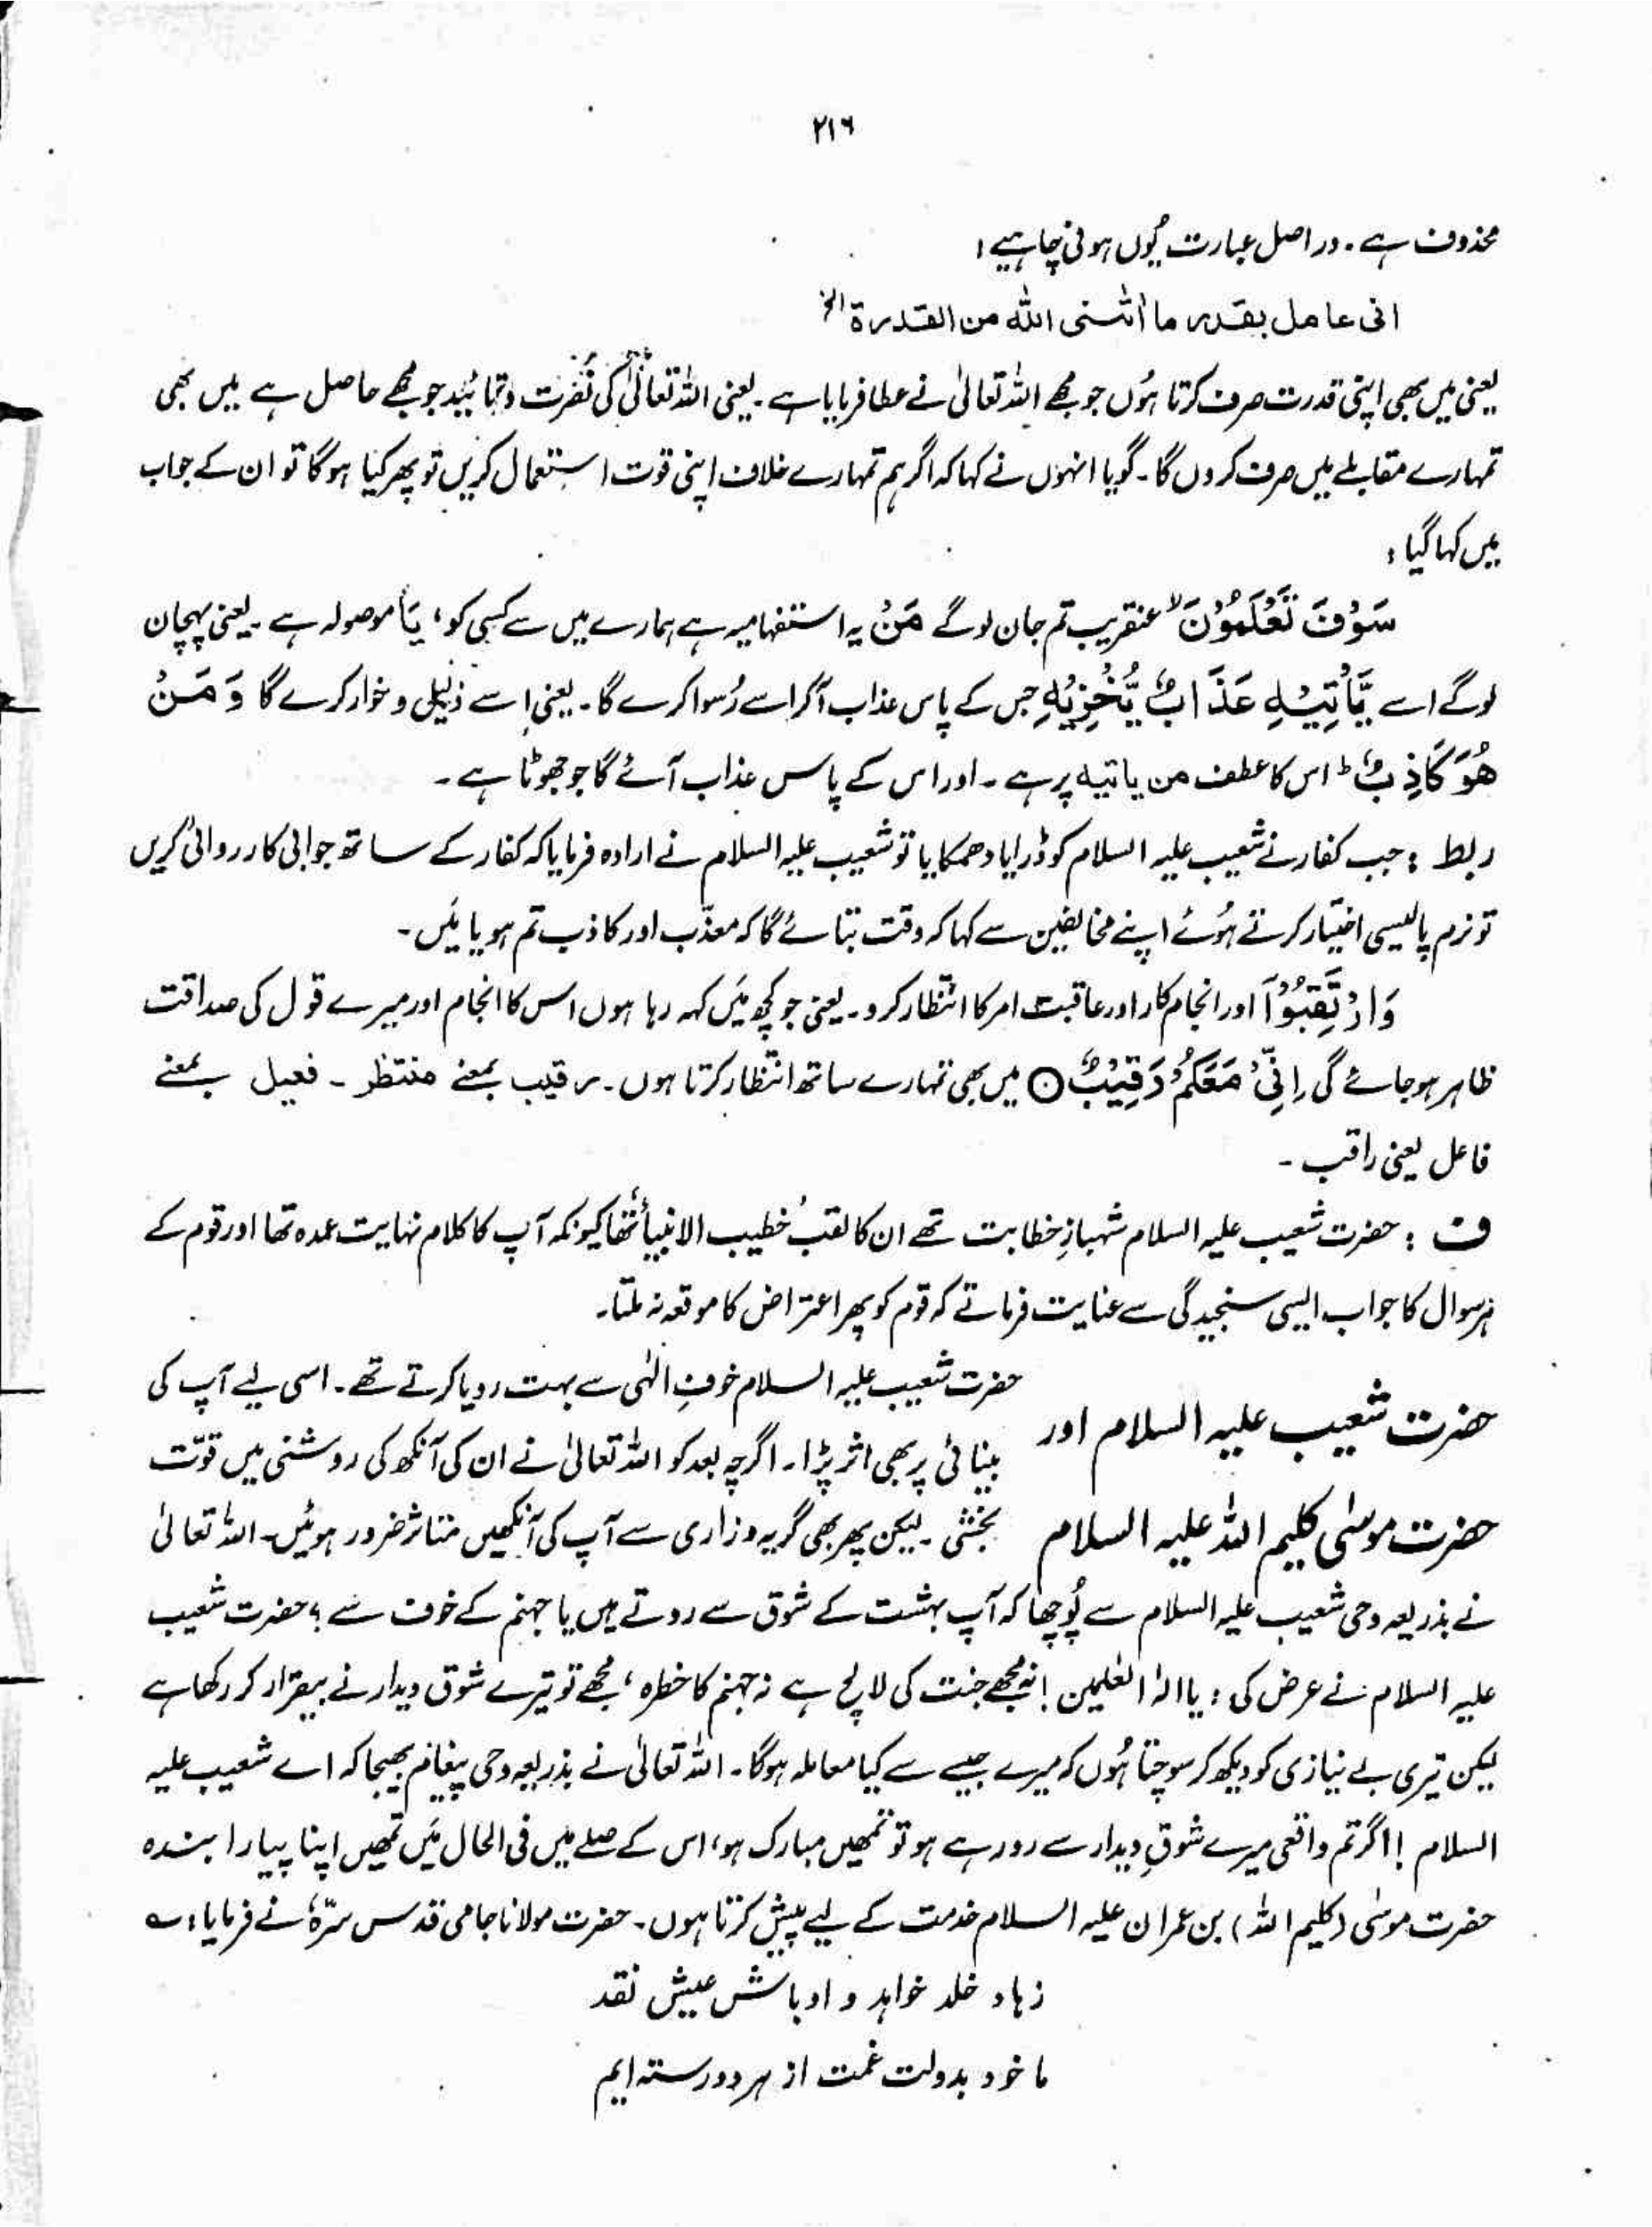 ۲۱۶
محذوف ہے۔ دراصل عبارت یُوں ہونی چاہیے:
انی عامل بقدر ما اٰتٰنی اللّٰہ من القدرۃ الخ
یعنی میں بھی اپنی قدرت صرف کرتا ہُوں جو مجھے اللہ تعالیٰ نے عطا فرمایا ہے۔ یعنی اللہ تعالیٰ کی نُصرت و تائید جو مجھے حاصل ہے میں بھی
تمہارے مقابلے میں صرف کردوں گا۔ گویا انہوں نے کہا کہ اگر ہم تمہارے خلاف اپنی قوت استعمال کریں تو پھر کیا ہوگا تو ان کے جواب
میں کہا گیا:
سَوْفَ تَعْلَمُوْنَ ۙ عنقریب تم جان لوگے مَنْ یہ استفہامیہ ہے ہمارے میں سے کسی کو، یَا موصولہ ہے۔ یعنی پہچان
لوگے اسے یَّاْتِیْہِ عَذَابٌ یُّخْزِیْہِ جس کے پاس عذاب آکر اسے رُسوا کرے گا۔ یعنی اسے ذلیل و خوار کرے گا وَ مَنْ
ھُوَ کَاذِبٌ ؕ اس کا عطف من یاتیہ پر ہے۔ اور اس کے پاس عذاب آئے گا جو جھوٹا ہے۔
ربط : جب کفار نے شعیب علیہ السلام کو ڈرایا دھمکایا تو شعیب علیہ السلام نے ارادہ فرمایا کہ کفار کے ساتھ جوابی کارروائی کریں
تو نرم پالیسی اختیار کرتے ہُوئے اپنے مخالفین سے کہا کہ وقت بتائے گا کہ معذّب اور کاذب تم ہو یا مَیں۔
وَارْتَقِبُوْٓا اور انجام کار اور عاقبت امر کا انتظار کرو۔ یعنی جو کچھ مَیں کہہ رہا ہوں اس کا انجام اور میرے قول کی صداقت
ظاہر ہوجائے گی اِنِّیْ مَعَکُمْ رَقِیْبٌ ○ میں بھی تمہارے ساتھ انتظار کرتا ہوں۔ رقیب بمعنے منتظر ۔ فعیل بمعنے
فاعل یعنی راقب ۔
ف : حضرت شعیب علیہ السلام شہبازِ خطابت تھے ان کا لقب خطیب الانبیاء تھا کیونکہ آپ کا کلام نہایت عمدہ تھا اور قوم کے
ہر سوال کا جواب ایسی سنجیدگی سے عنایت فرماتے کہ قوم کو پھر اعتراض کا موقعہ نہ ملتا۔
حضرت شعیب علیہ السلام اور
حضرت موسٰی کلیم اللہ علیہ السلام
حضرت شعیب علیہ السلام خوفِ الٰہی سے بہت رویا کرتے تھے۔ اسی لیے آپ کی
بینائی پر بھی اثر پڑا۔ اگرچہ بعد کو اللہ تعالیٰ نے ان کی آنکھ کی روشنی میں قوّت
بخشی۔ لیکن پھر بھی گریہ و زاری سے آپ کی آنکھیں متاثر ضرور ہوئیں۔ اللہ تعالیٰ
نے بذریعہ وحی شعیب علیہ السلام سے پُوچھا کہ آپ بہشت کے شوق سے روتے ہیں یا جہنم کے خوف سے؟ حضرت شعیب
علیہ السلام نے عرض کی: یا الٰہ العٰلمین! نہ مجھے جنت کی لالچ ہے نہ جہنم کا خطرہ، مجھے تو تیرے شوق دیدار نے بیقرار کر رکھا ہے
لیکن تیری بے نیازی کو دیکھ کر سوچتا ہُوں کہ میرے جیسے سے کیا معاملہ ہوگا۔ اللہ تعالیٰ نے بذریعہ وحی پیغام بھیجا کہ اے شعیب علیہ
السلام! اگر تم واقعی میرے شوقِ دیدار سے رو رہے ہو تو تمھیں مبارک ہو، اس کے صلے میں فی الحال مَیں تمھیں اپنا پیارا بندہ
حضرت موسٰی (کلیم اللہ) بن عمران علیہ السلام خدمت کے لیے پیش کرتا ہوں۔ حضرت مولانا جامی قدس سرّہٗ نے فرمایا: ؎
زہاد خلد خواہد و اوباش عیش نقد
ما خود بدولت غمت از ہر دو رستہ ایم